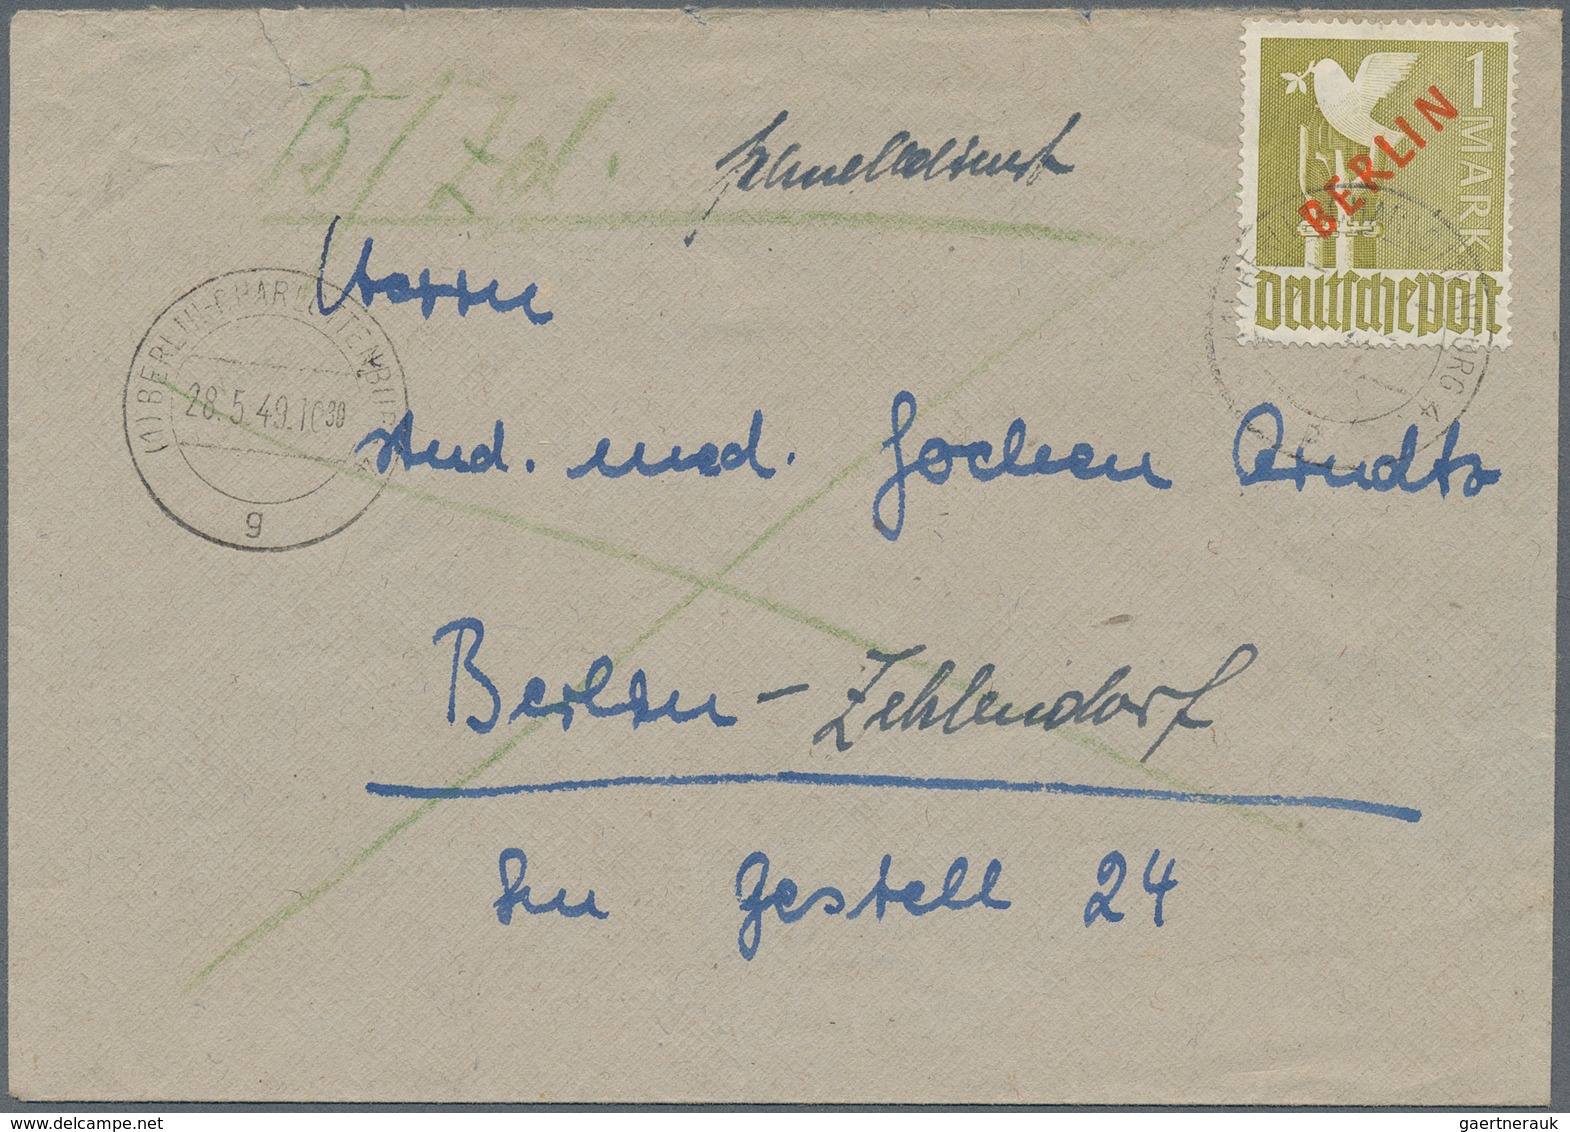 B/Zd.
Schnelldienst
1 MARK
BERLIN
Deutsche Post
Herrn
(1) BERLIN-CHARLOTTENBURG
28.5.49.1030
g
stud. med. Jochen Arndts
Berlin-Zehlendorf
Im Gestell 24
gaertnerauk @ delcampe.net